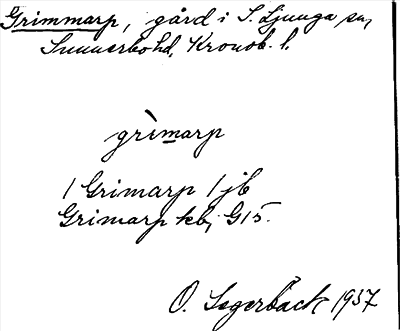 Grimmarp, gård i S. Ljunga sn,
Sunnerbo hd, Kronob. l.
grìmarp
1 Grimarp 1 jb
Grimarp kb, G15.
O. Segerbäck 1937